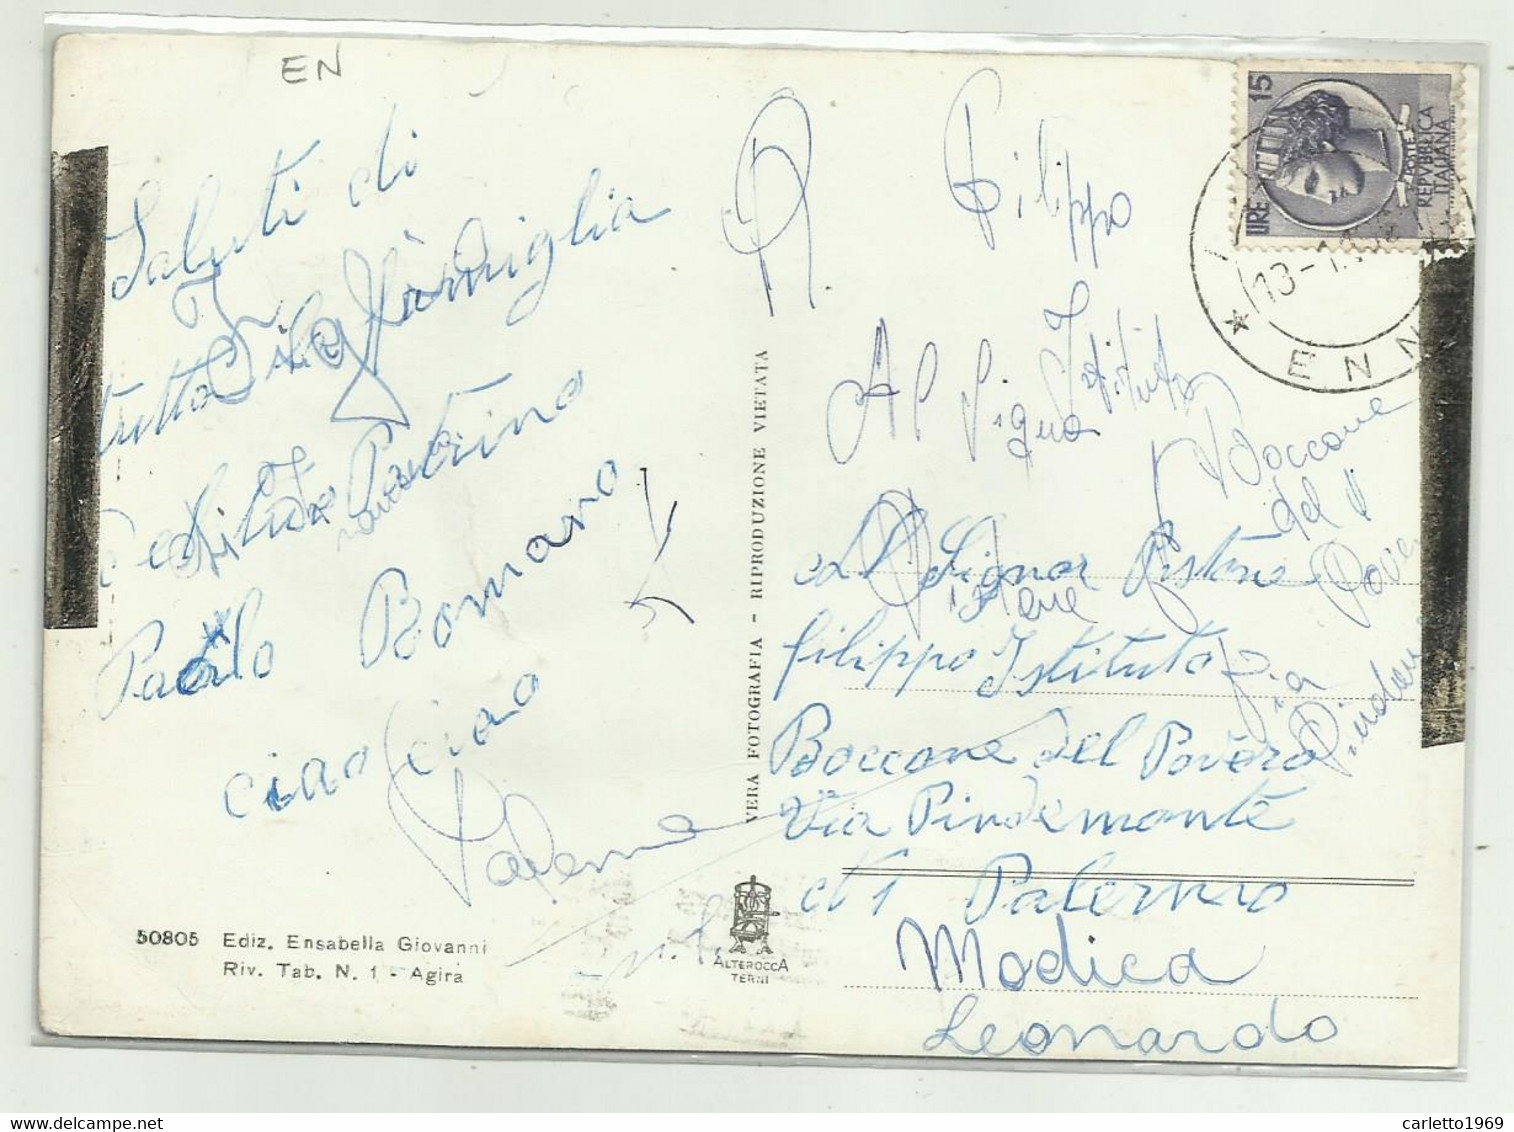 EN
Saluti di
tutta la famiglia
Pestrino
Paolo Romano
ciao ciao
Palermo
50805 Ediz. Ensabella Giovanni
Riv. Tab. N. 1 - Agira
VERA FOTOGRAFIA - RIPRODUZIONE VIETATA
ALTEROCCA
TERNI
LIRE 15
POSTE
REPVBBLICA
ITALIANA
ENN
Filippo
Al Signor
Istituto
Boccone
del
Pove
Via
Pindem
al Signor Pistone
filippo Istituto
Boccone del Povero
Via Pindemonte
N 1 Palermo
Modica
Leonardo
carletto1969